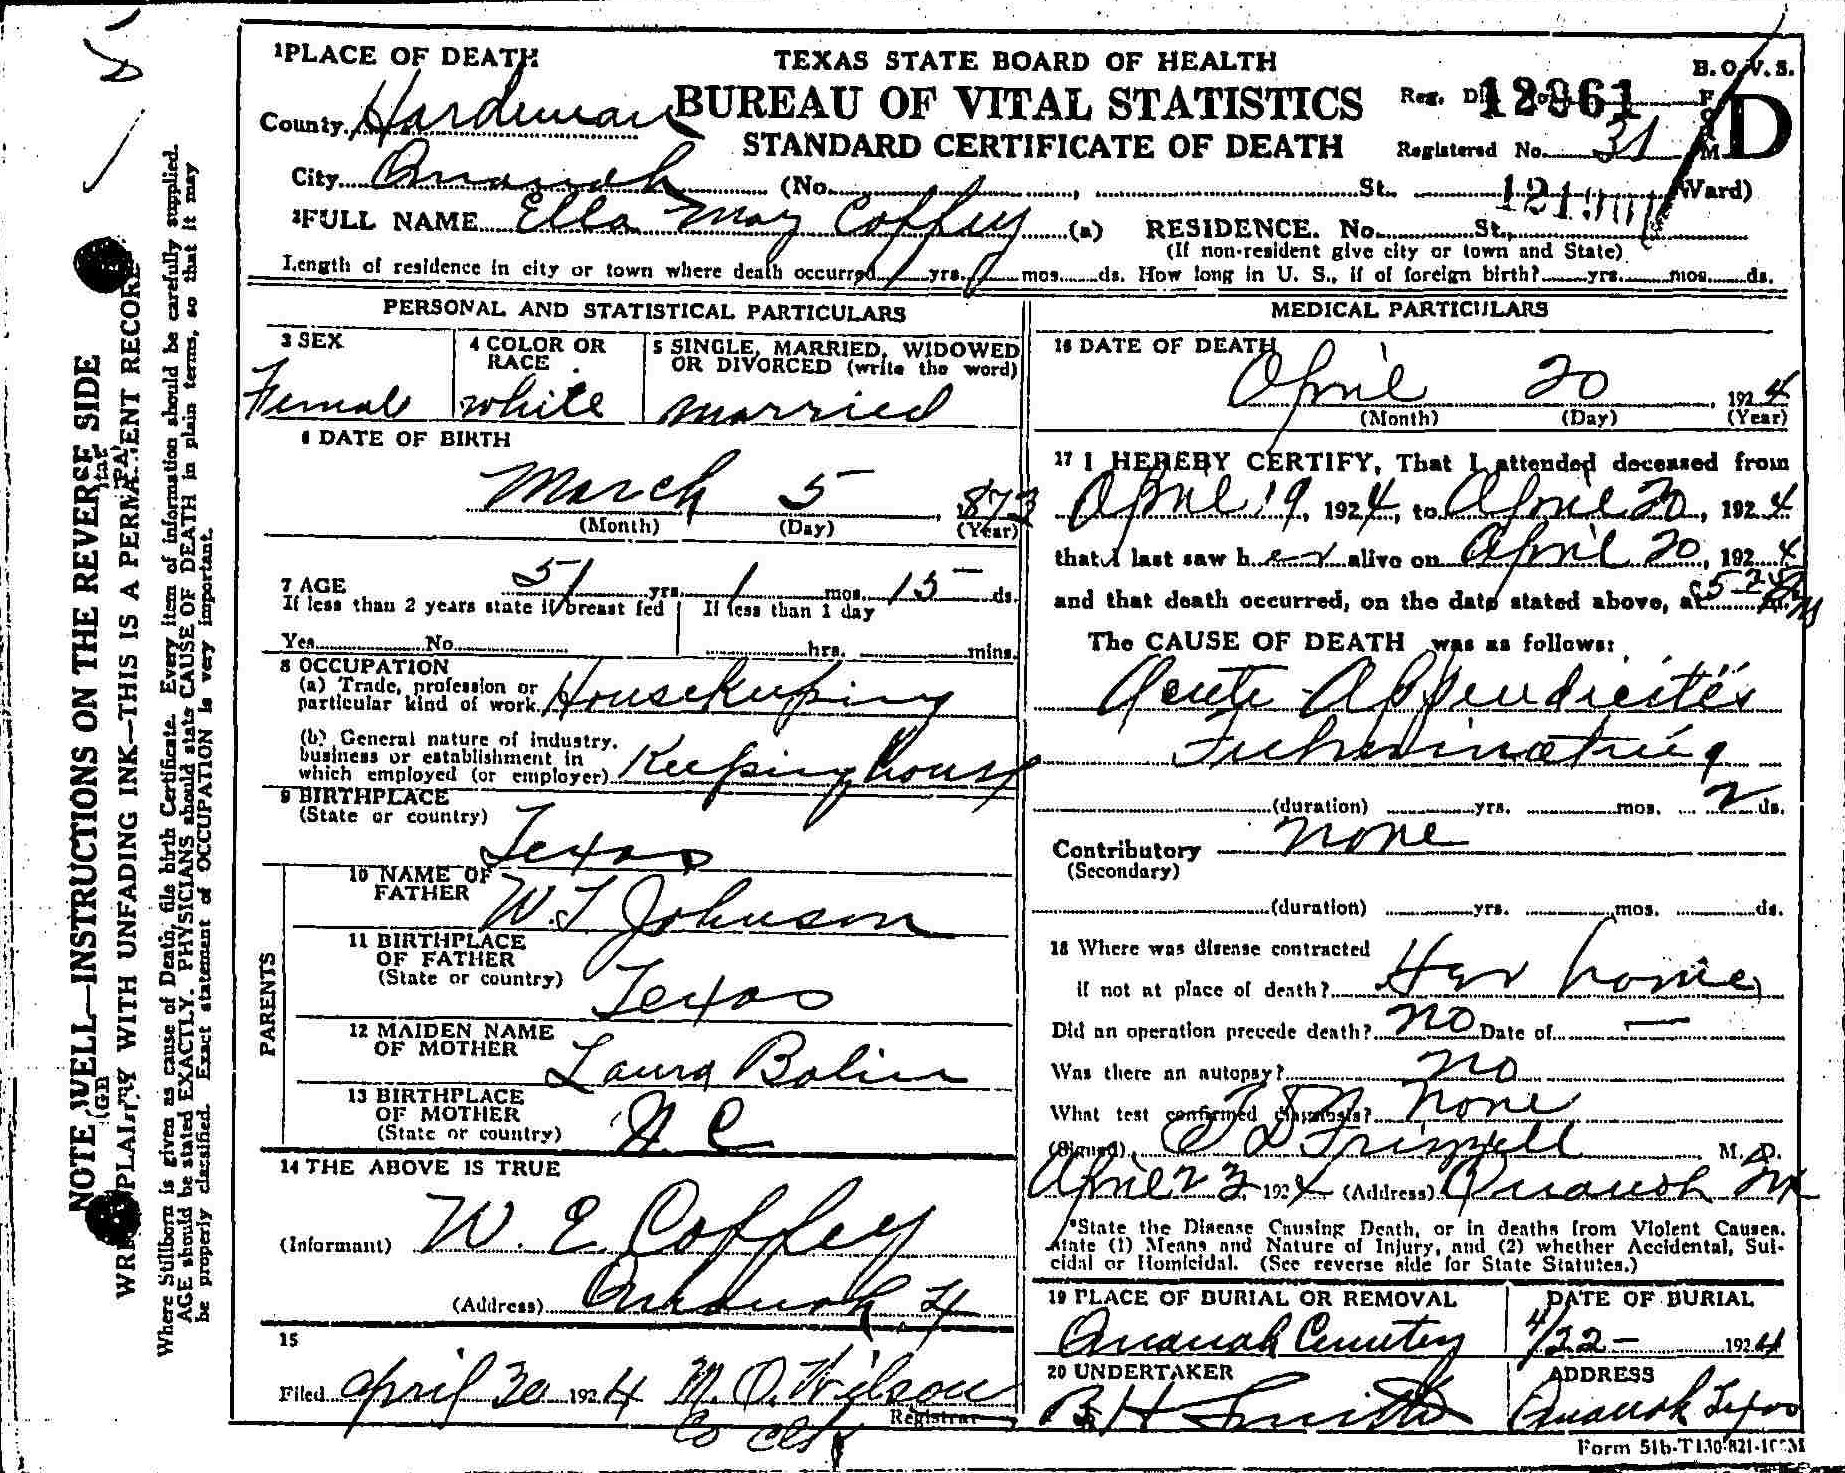 1 PLACE OF DEATH
TEXAS STATE BOARD OF HEALTH
B. O. V. S.
County Hardeman
BUREAU OF VITAL STATISTICS
Reg. Dis. No. 12961
FORM D
STANDARD CERTIFICATE OF DEATH
Registered No. 31
City Quanah (No. , St. Ward)
2 FULL NAME Ella May Coffey (a) RESIDENCE. No. St.,
(If non-resident give city or town and State)
Length of residence in city or town where death occurred yrs. mos. ds. How long in U. S., if of foreign birth? yrs. mos. ds.
PERSONAL AND STATISTICAL PARTICULARS
3 SEX
Female
4 COLOR OR RACE
white
5 SINGLE, MARRIED, WIDOWED
OR DIVORCED (write the word)
married
6 DATE OF BIRTH
March 5, 1873
(Month) (Day) (Year)
7 AGE 51 yrs. 1 mos. 15 ds.
If less than 2 years state if breast fed If less than 1 day
Yes No hrs. mins.
8 OCCUPATION
(a) Trade, profession or
particular kind of work Housekeeping
(b) General nature of industry,
business or establishment in
which employed (or employer) Keeping house
9 BIRTHPLACE
(State or country)
Texas
PARENTS
10 NAME OF
FATHER W. T. Johnson
11 BIRTHPLACE
OF FATHER
(State or country) Texas
12 MAIDEN NAME
OF MOTHER Laura Bolin
13 BIRTHPLACE
OF MOTHER
(State or country) N. C
14 THE ABOVE IS TRUE
(Informant) W. E. Coffey
(Address) Quanah
15
Filed April 30 1924 M. O. Wilson
Registrar
Co Clk
MEDICAL PARTICULARS
16 DATE OF DEATH
April 20, 1924
(Month) (Day) (Year)
17 I HEREBY CERTIFY, That I attended deceased from
April 19, 1924, to April 20, 1924
that I last saw her alive on April 20, 1924
and that death occurred, on the date stated above, at
The CAUSE OF DEATH was as follows:
Acute Appendicitis
Fulminating
(duration) yrs. mos. 2 ds.
Contributory none
(Secondary)
(duration) yrs. mos. ds.
18 Where was disease contracted
if not at place of death? Her home
Did an operation precede death? no Date of —
Was there an autopsy? no
What test confirmed diagnosis? none
(Signed) T D Frizzell M. D.
April 23, 1924 (Address) Quanah Tex
*State the Disease Causing Death, or in deaths from Violent Causes,
state (1) Means and Nature of Injury, and (2) whether Accidental, Sui-
cidal or Homicidal. (See reverse side for State Statutes.)
19 PLACE OF BURIAL OR REMOVAL
Quanah Cemetery
DATE OF BURIAL
4/22 — 1924
20 UNDERTAKER
B H Smith
ADDRESS
Quanah Texas
Form 51b-T130-821-100M
NOTE WELL—INSTRUCTIONS ON THE REVERSE SIDE
WRITE PLAINLY WITH UNFADING INK—THIS IS A PERMANENT RECORD
Where Stillborn is given as cause of Death, file birth Certificate. Every item of information should be carefully supplied.
AGE should be stated EXACTLY. PHYSICIANS should state CAUSE OF DEATH in plain terms, so that it may
be properly classified. Exact statement of OCCUPATION is very important.